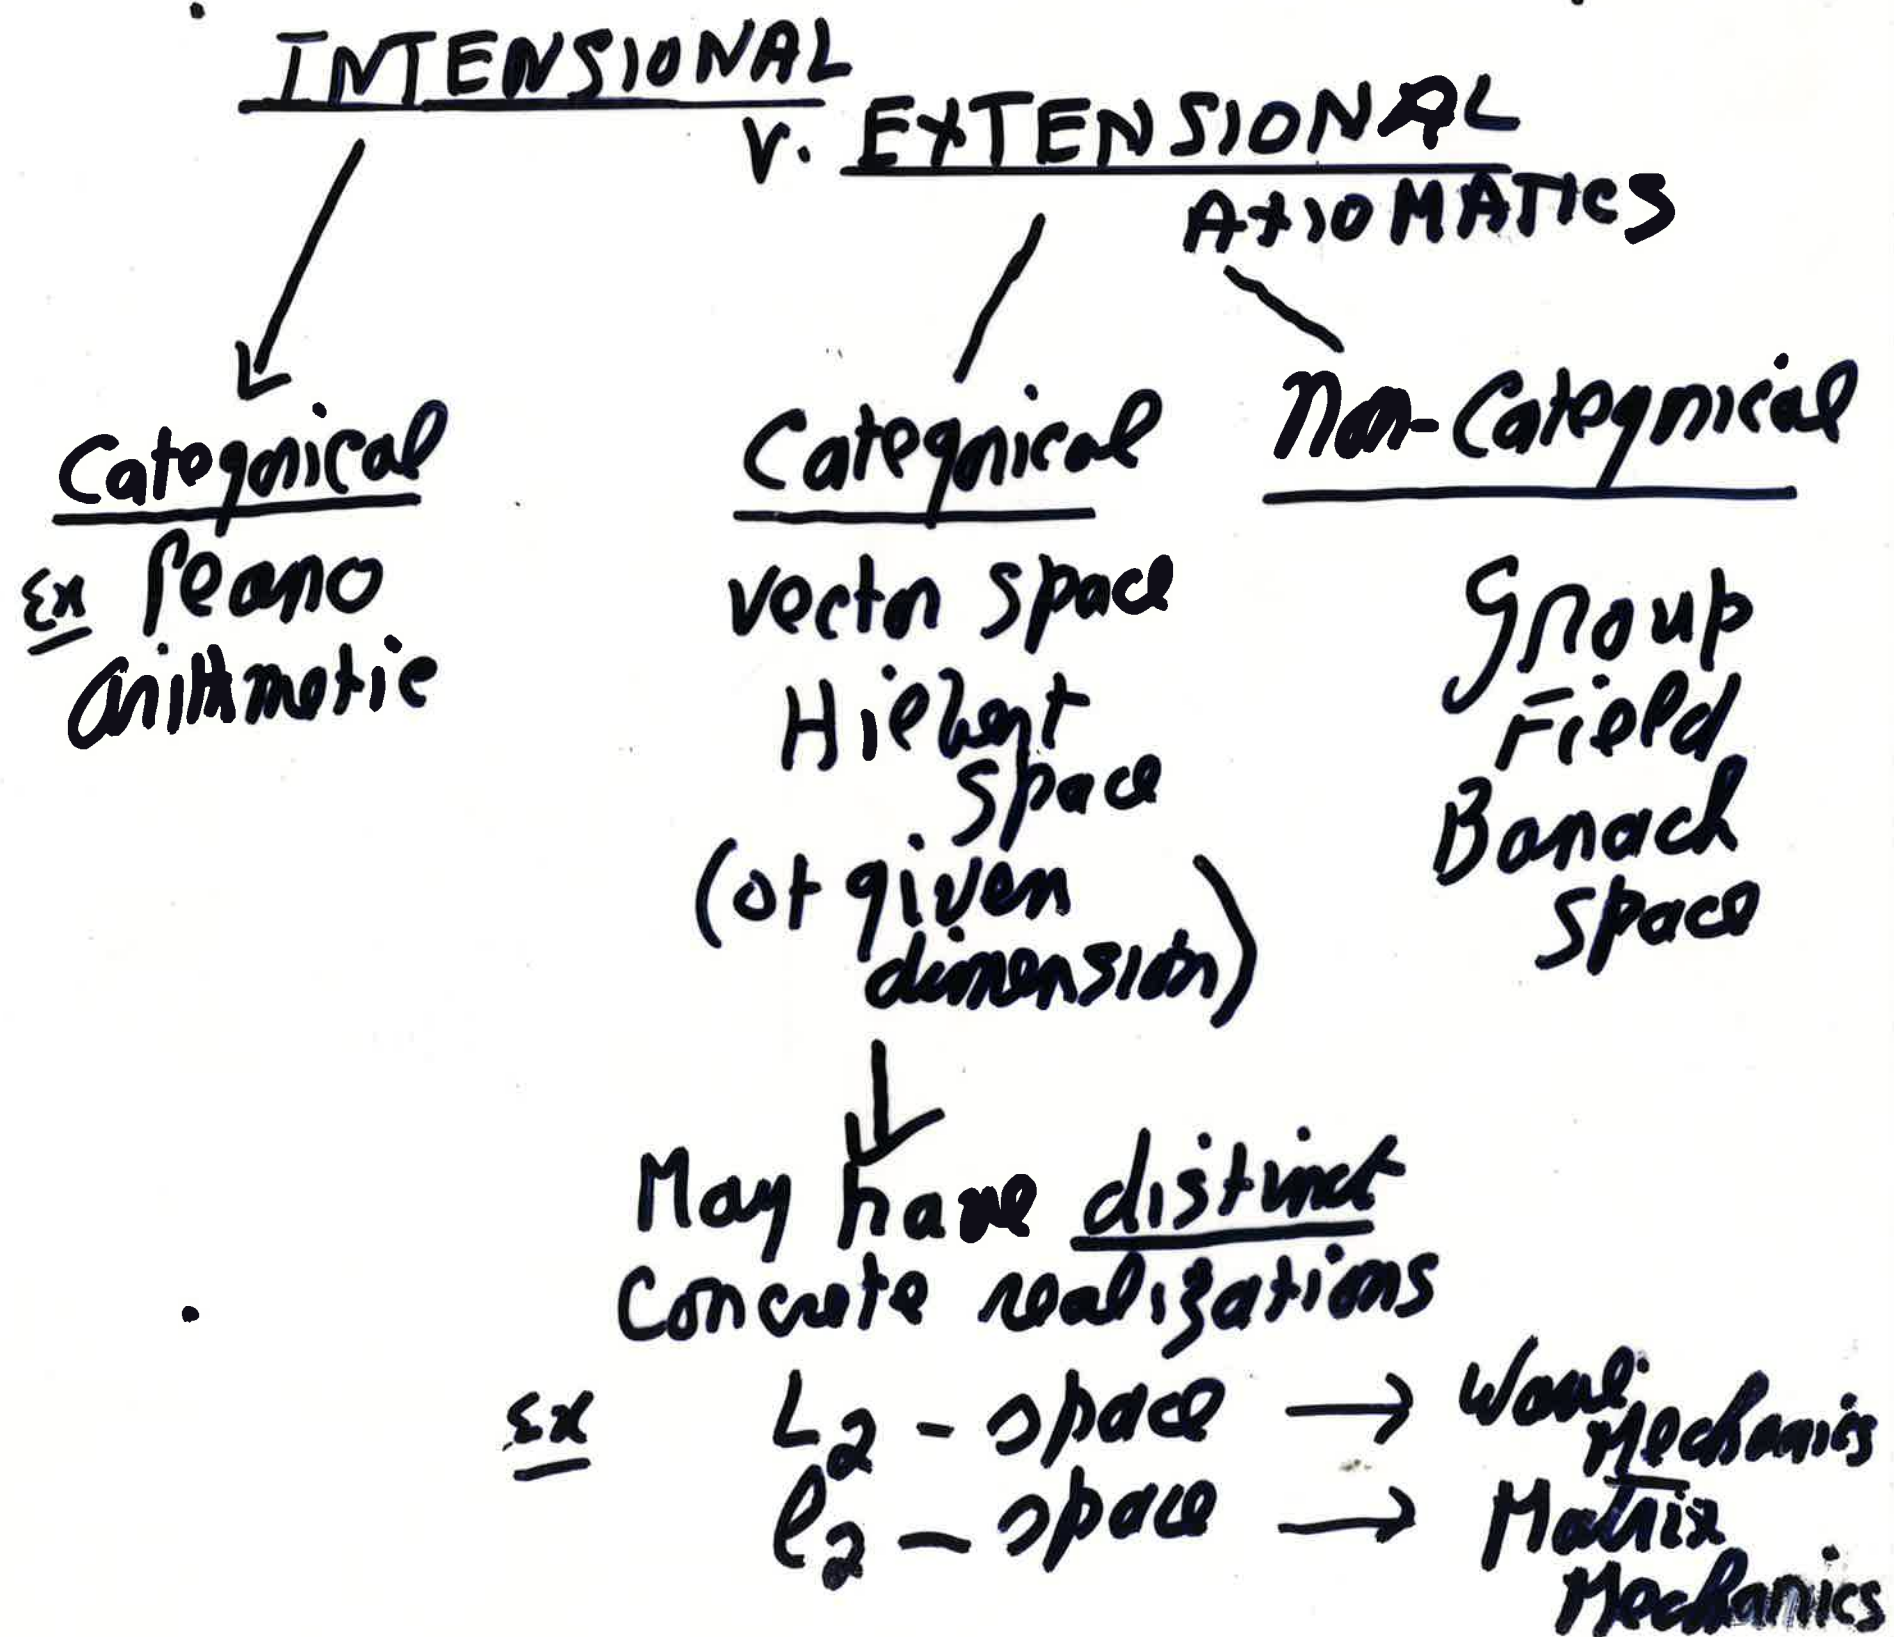 INTENSIONAL
V. EXTENSIONAL
AXIOMATICS
Categorical
Ex Peano
arithmetic
Categorical
Vector space
Hilbert
space
(of given
dimension)
Non-Categorical
Group
Field
Banach
space
May have distinct
Concrete realizations
Ex L2 - space → Wave
Mechanics
l2 - space → Matrix
Mechanics